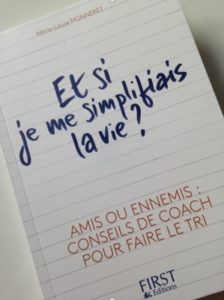 Marie-Laure MONNERET
Et si
je me simplifiais
la vie ?
AMIS OU ENNEMIS :
CONSEILS DE COACH
POUR FAIRE LE TRI
FIRST
Éditions